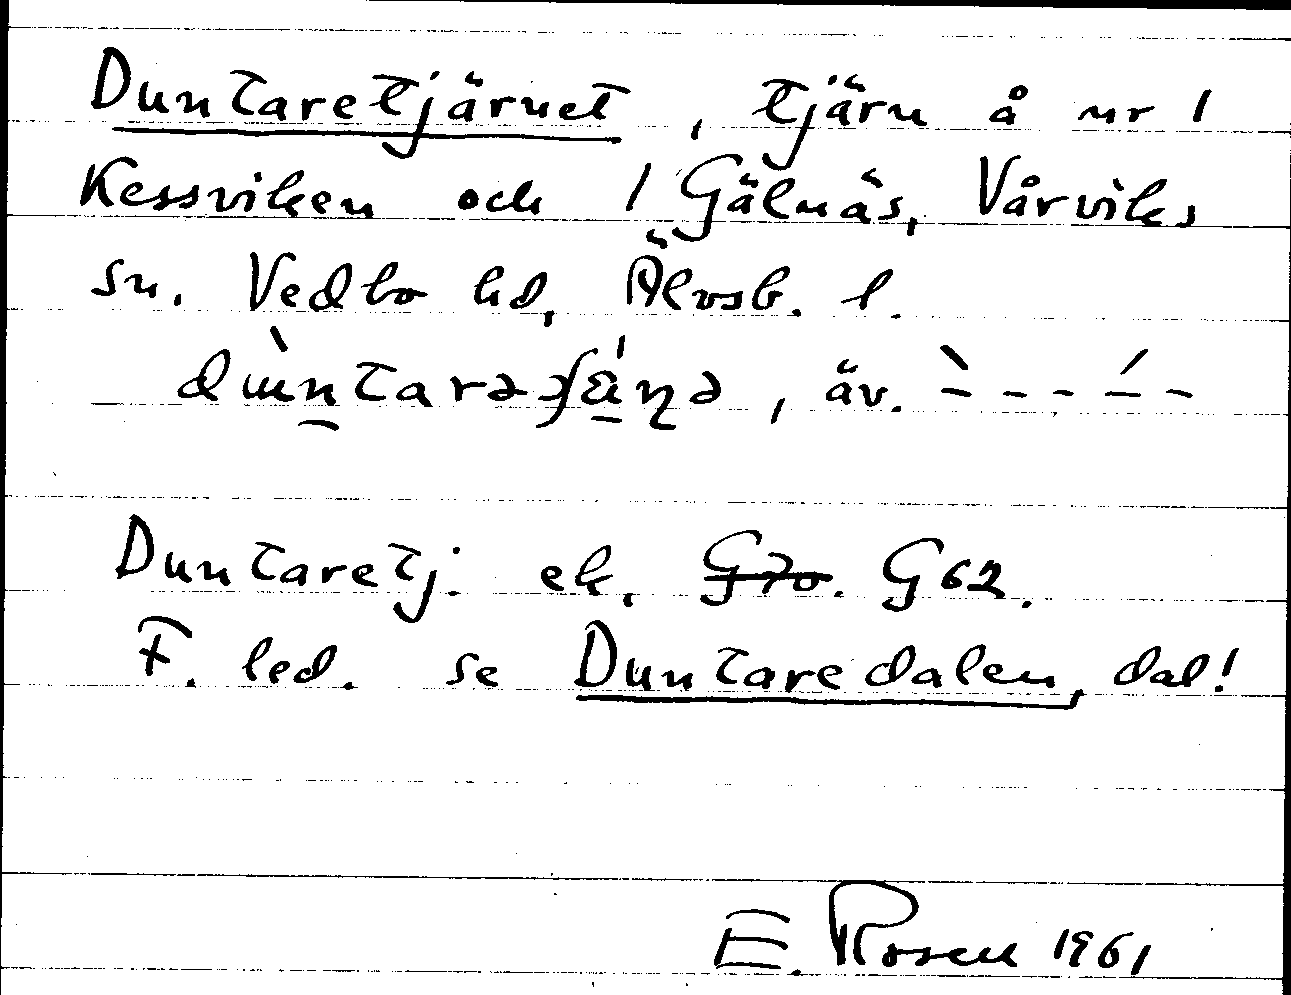 Duntaretjärnet, tjärn å nr 1
Kessviken och 1 Gälnäs, Vårviks
sn. Vedbo hd, Älvsb. l.
dùntarəʃä́ɳə, äv. `- - - ´- -
Duntaretj. ek. G70. G62.
F. led. se Duntaredalen, dal!
E. Rosen 1961